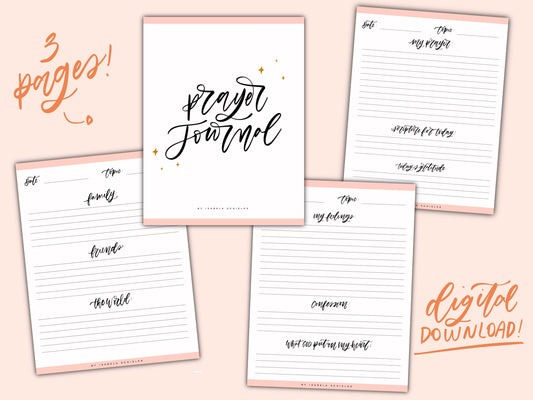 3
pages!
prayer
Journal
date
time
my prayer
scripture for today
today's gratitude
date
time
family
friends
the world
time
my feelings
confession
what God put in my heart:
digital
DOWNLOAD!